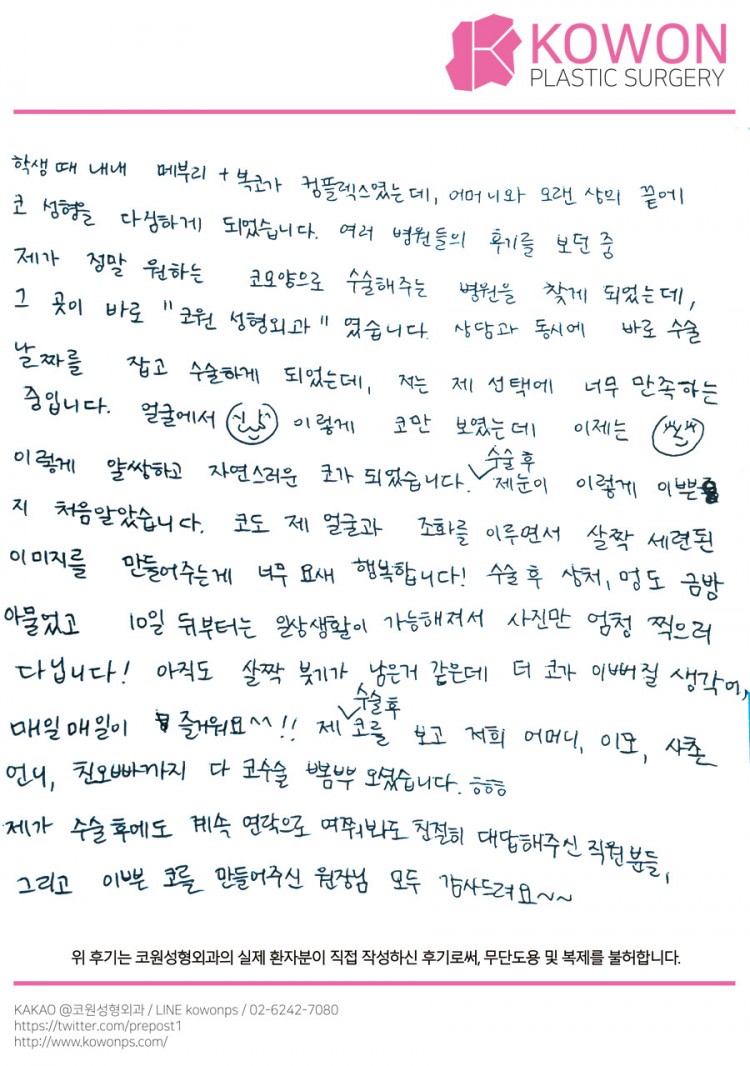 KOWON
PLASTIC SURGERY
학생 때 내내 메부리 + 복코가 컴플렉스였는데, 어머니와 오랜 상의 끝에
코 성형을 다짐하게 되었습니다. 여러 병원들의 후기를 보던 중
제가 정말 원하는 코모양으로 수술해주는 병원을 찾게 되었는데,
그 곳이 바로 "코원 성형외과" 였습니다. 상담과 동시에 바로 수술
날짜를 잡고 수술하게 되었는데, 저는 제 선택에 너무 만족하는
중입니다. 얼굴에서 이렇게 코만 보였는데 이제는
이렇게 얄쌍하고 자연스러운 코가 되었습니다. 수술 후 제눈이 이렇게 이쁜
지 처음알았습니다. 코도 제 얼굴과 조화를 이루면서 살짝 세련된
이미지를 만들어주는게 너무 요새 행복합니다! 수술 후 상처, 멍도 금방
아물었고 10일 뒤부터는 일상생활이 가능해져서 사진만 엄청 찍으러
다닙니다! 아직도 살짝 붓기가 남은거 같은데 더 코가 이뻐질 생각에,
매일매일이 즐거워요^^!! 제 수술후 코를 보고 저희 어머니, 이모, 사촌
언니, 친오빠까지 다 코수술 뽐뿌 오셨습니다. ㅎㅎㅎ
제가 수술후에도 계속 연락으로 여쭤봐도 친절히 대답해주신 직원분들,
그리고 이쁜 코를 만들어주신 원장님 모두 감사드려요~~
위 후기는 코원성형외과의 실제 환자분이 직접 작성하신 후기로써, 무단도용 및 복제를 불허합니다.
KAKAO @코원성형외과 / LINE kowonps / 02-6242-7080
https://twitter.com/prepost1
http://www.kowonps.com/